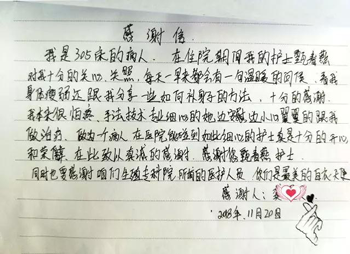 感谢信
我是305床的病人，在住院期间我的护士甄看慈
对我十分的关心，关照，每天一早来都会有一句温暖的问候，看我
身体瘦弱还跟我分享一些如何补身子的方法，十分的感谢
我本来很怕疼，手法技术专业细心的她边边小心翼翼的跟我
做治疗，做为个病人在医院能碰到如此细心的护士真是十分的开心
和荣幸，在此致以真诚的感谢，感谢您甄护士
同时也要感谢咱们生殖专科院所有的医护人员，你们是最美的白衣天使
感谢人：
2018.11月20日